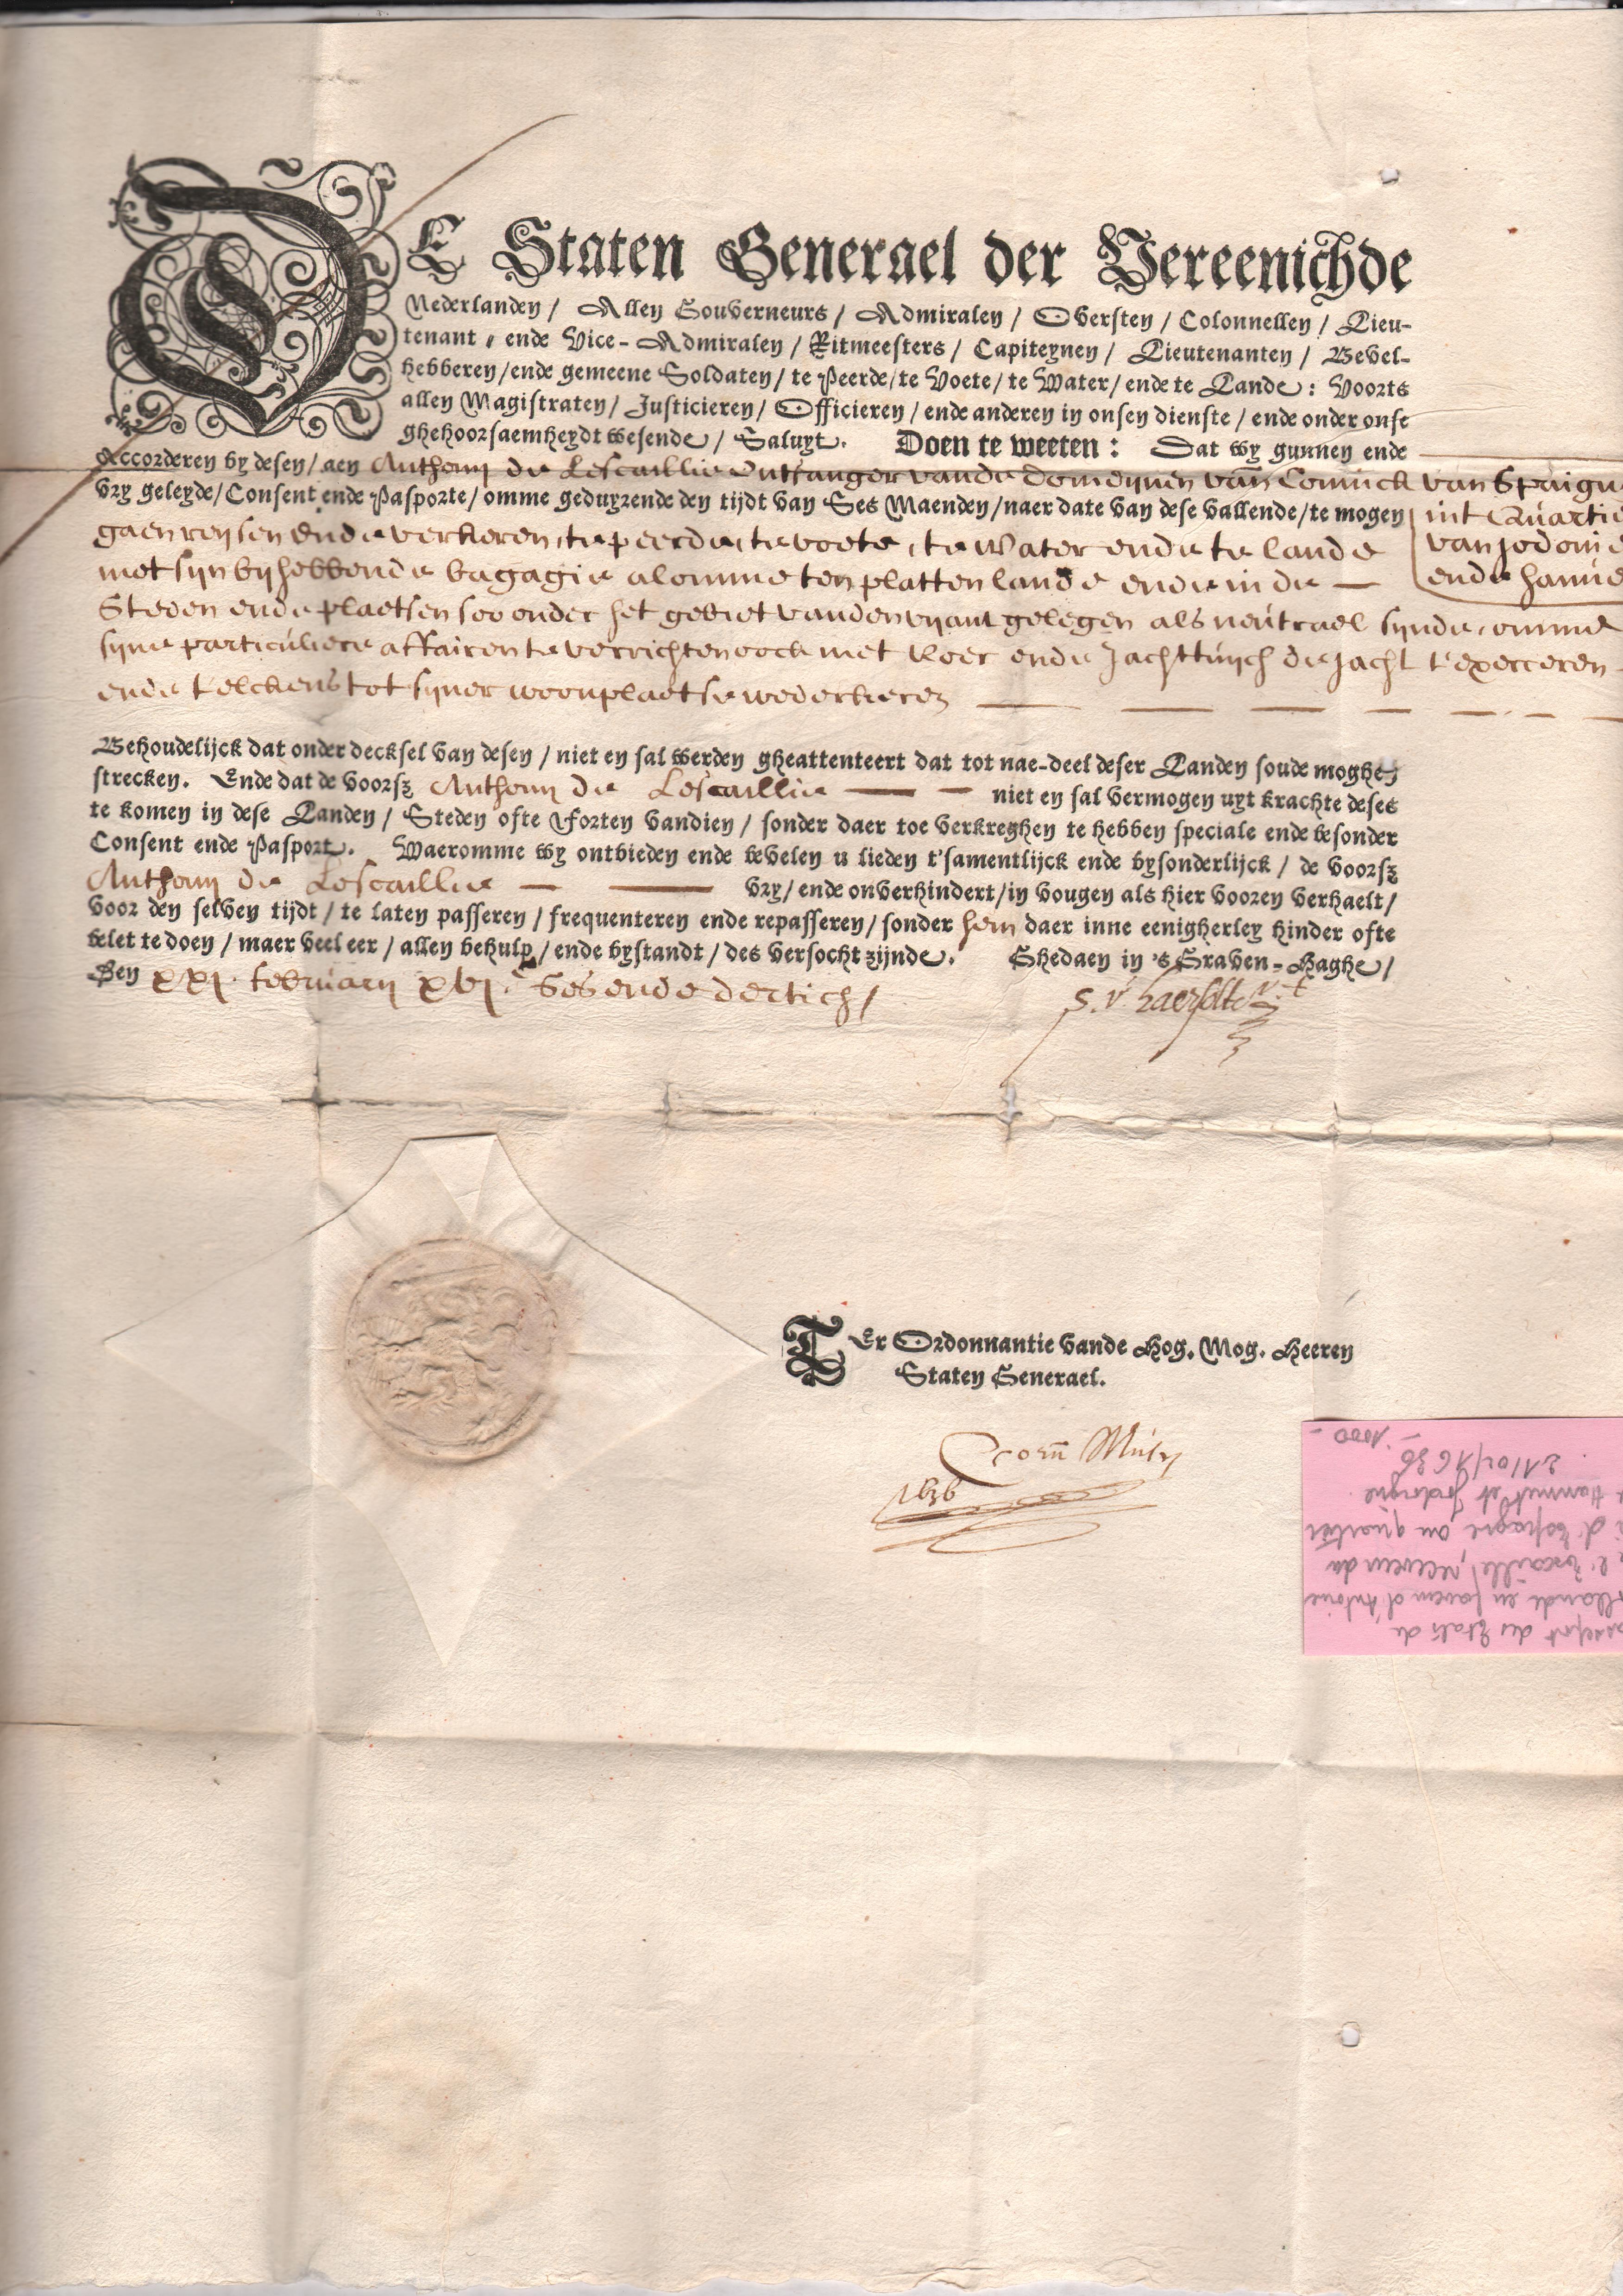 DE Staten Generael der Vereenichde
Nederlanden / Allen Gouverneurs / Admiralen / Oversten / Colonnellen / Lieu-
tenant / ende Vice-Admiralen / Ritmeesters / Capiteynen / Lieutenanten / Bevel-
hebberen / ende gemeene Soldaten / te Peerde / te Voete / te Water / ende te Lande: Voorts
allen Magistraten / Justicieren / Officieren / ende anderen in onsen dienste / ende onder onse
ghehoorsaemheydt wesende / Saluyt. Doen te weeten: Dat wy gunnen ende
Accorderen by desen / aen Anthony de Lescaillie Ontfanger vande domeijnen van Coninck van Spaign
vry geleyde / Consent ende Pasporte / omme geduyrende den tijdt van Ses Maenden / naer date van dese vallende / te mogen
int Quartie
van Jodoine
ende hanue
gaen reysen ende verkeren, te peerde, te voete, te Water ende te lande
met sijn bijhebbende bagagie alomme ten platten lande ende in de —
Steden ende plaetsen soo onder het gebiet vanden vijant gelegen als neutrael sijnde, omme
sijne particuliere affairen te verrichten oock met Roer ende Jachttuijch de Jacht t'exerceren
ende t'elckens tot sijner woonplaetse wederkeren
Behoudelijck dat onder decksel van desen / niet en sal werden gheattenteert dat tot nae-deel deser Landen soude moghen
strecken. Ende dat de voorsz Anthony de Lescaillie — — niet en sal vermogen uyt krachte deses
te komen in dese Landen / Steden ofte Forten vandien / sonder daer toe verkreghen te hebben speciale ende besonder
Consent ende Pasport. Waeromme wy ontbieden ende bevelen u lieden t'samentlijck ende bysonderlijck / de voorsz
Anthony de Lescaillie — — vry / ende onverhindert / in vougen als hier vooren verhaelt /
voor den selven tijdt / te laten passeren / frequenteren ende repasseren / sonder hem daer inne eenigherley hinder ofte
belet te doen / maer veel eer / allen behulp / ende bystandt / des versocht zijnde. Ghedaen in 's Graven-Haghe /
Den xxj. februarij xvj.c Ses ende dertich /
S. v. haersolte
TEr Ordonnantie vande Hog. Mog. Heeren
Staten Generael.
Corn Musch
1636
ssepot des Etats de
llande en faveur d'Antoine
e l'Escaille, receveur du
i d'Espagne au quartier
t Hannut et Jodoigne
21/02/1636
- 1000 -